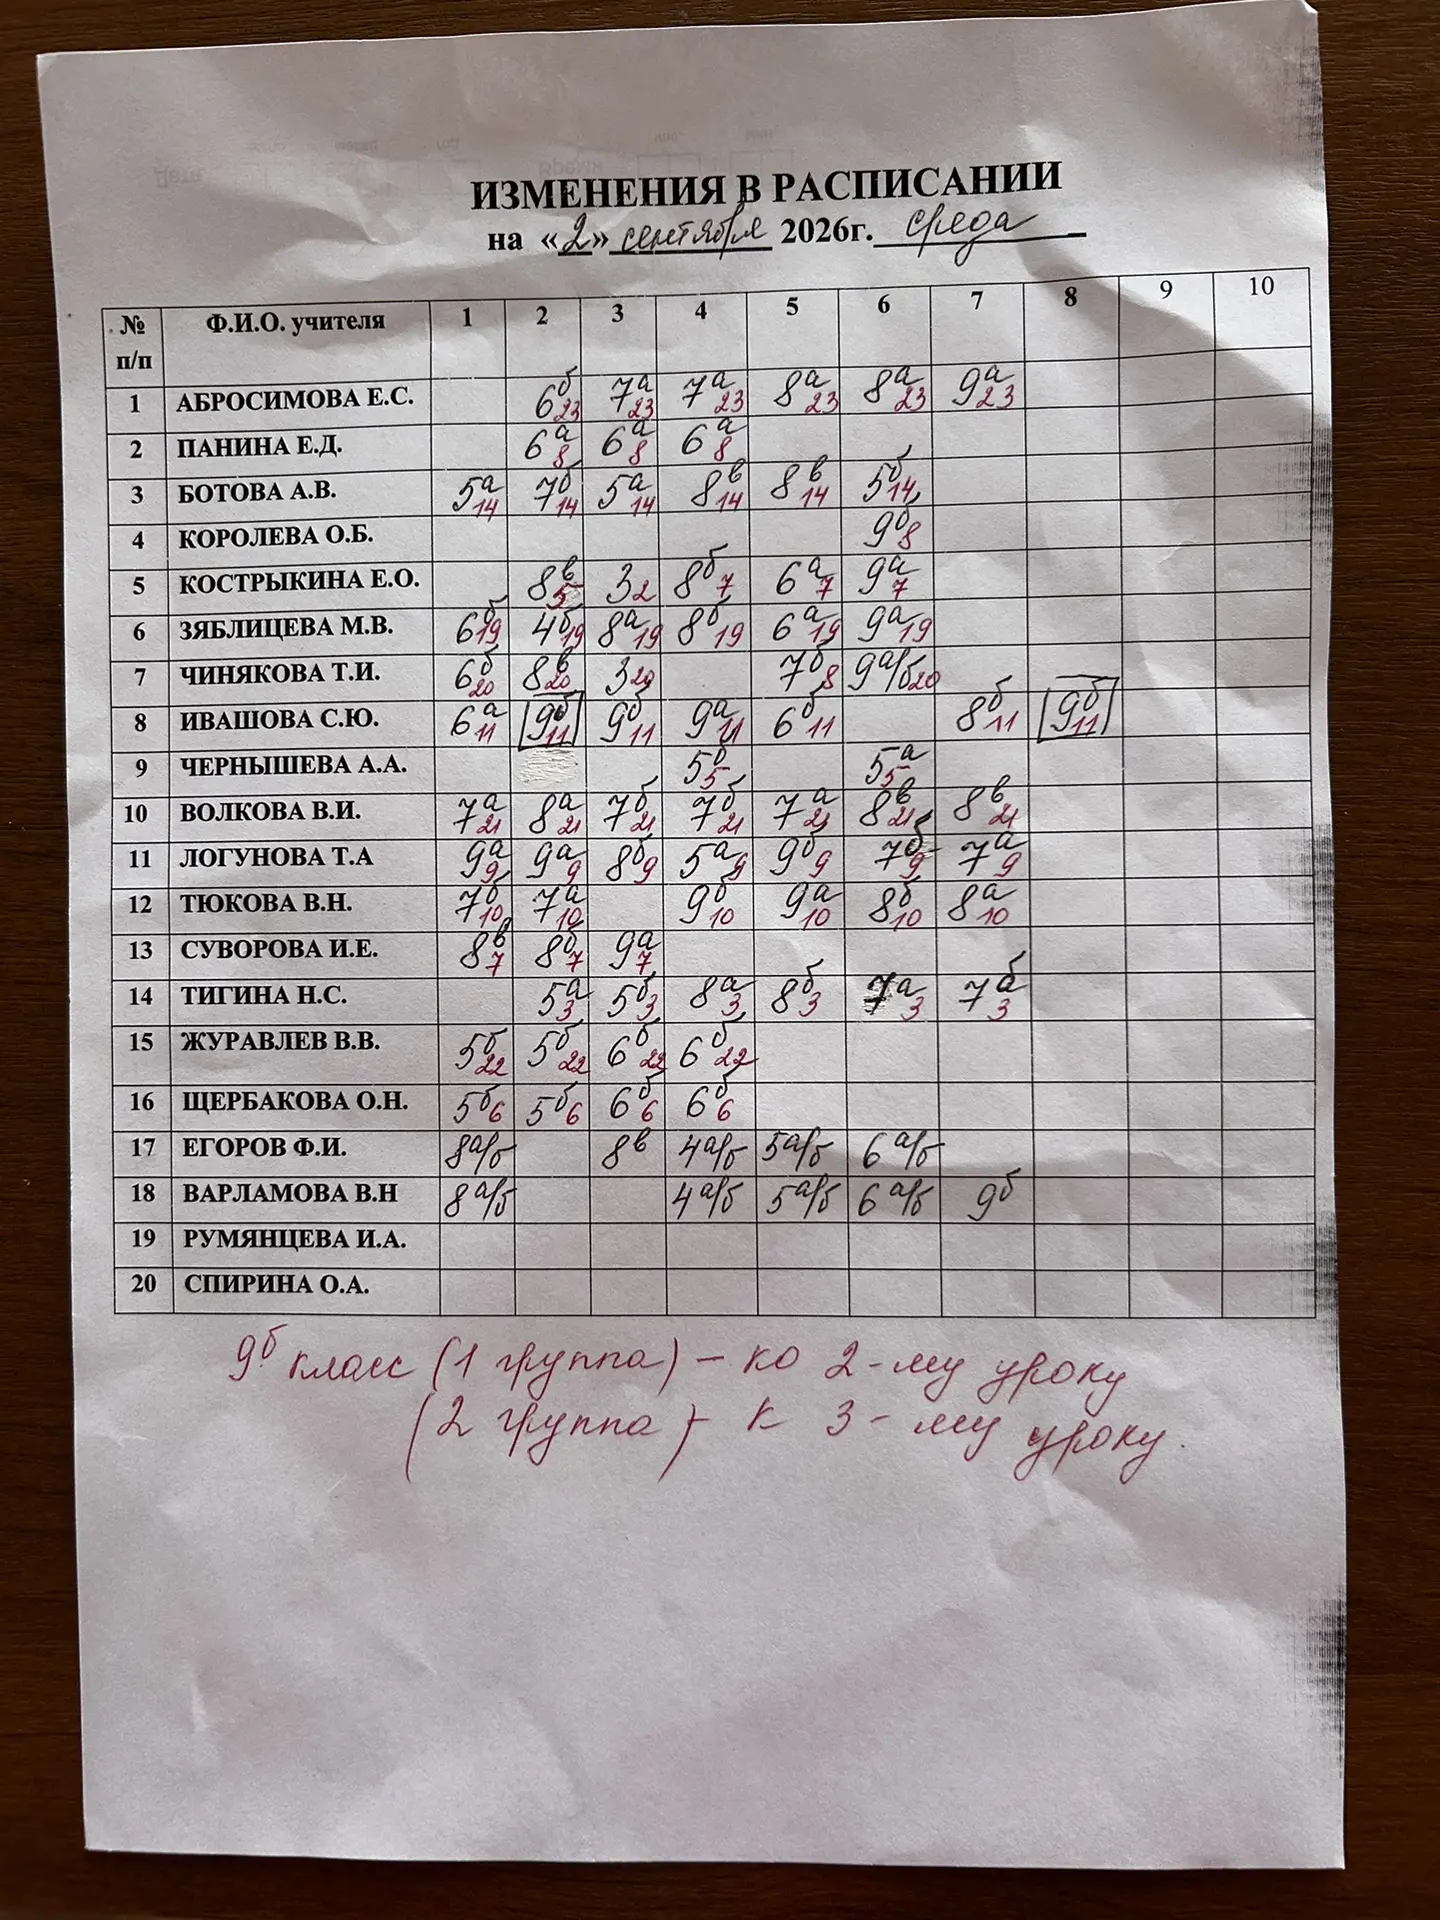 ИЗМЕНЕНИЯ В РАСПИСАНИИ
на «2» сентября 2026г. среда
№ п/п Ф.И.О. учителя 1 2 3 4 5 6 7 8 9 10
1 АБРОСИМОВА Е.С. 6б 23 7а 23 7а 23 8а 23 8а 23 9а 23
2 ПАНИНА Е.Д. 6а 8 6а 8 6а 8
3 БОТОВА А.В. 5а 14 7б 14 5а 14 8в 14 8в 14 5б 14
4 КОРОЛЕВА О.Б. 9б 8
5 КОСТРЫКИНА Е.О. 8в 5 3 2 8б 7 6а 7 9а 7
6 ЗЯБЛИЦЕВА М.В. 6б 19 4б 19 8а 19 8б 19 6а 19 9а 19
7 ЧИНЯКОВА Т.И. 6б 20 8в 20 3 20 7б 8 9а/б 20
8 ИВАШОВА С.Ю. 6а 11 9б 11 9б 11 9а 11 6б 11 8б 11 9б 11
9 ЧЕРНЫШЕВА А.А. 5б 5 5а 5
10 ВОЛКОВА В.И. 7а 21 8а 21 7б 21 7б 21 7а 21 8в 21 8в 21
11 ЛОГУНОВА Т.А 9а 9 9а 9 8б 9 5а 9 9б 9 7б 9 7а 9
12 ТЮКОВА В.Н. 7б 10 7а 10 9б 10 9а 10 8б 10 8а 10
13 СУВОРОВА И.Е. 8в 7 8б 7 9а 7
14 ТИГИНА Н.С. 5а 3 5б 3 8а 3 8б 3 7а 3 7б 3
15 ЖУРАВЛЕВ В.В. 5б 22 5б 22 6б 22 6б 22
16 ЩЕРБАКОВА О.Н. 5б 6 5б 6 6б 6 6б 6
17 ЕГОРОВ Ф.И. 8а/б 8в 4а/б 5а/б 6а/б
18 ВАРЛАМОВА В.Н 8а/б 4а/б 5а/б 6а/б 9б
19 РУМЯНЦЕВА И.А.
20 СПИРИНА О.А.
9б класс (1 группа) – ко 2-му уроку
(2 группа) – к 3-му уроку.